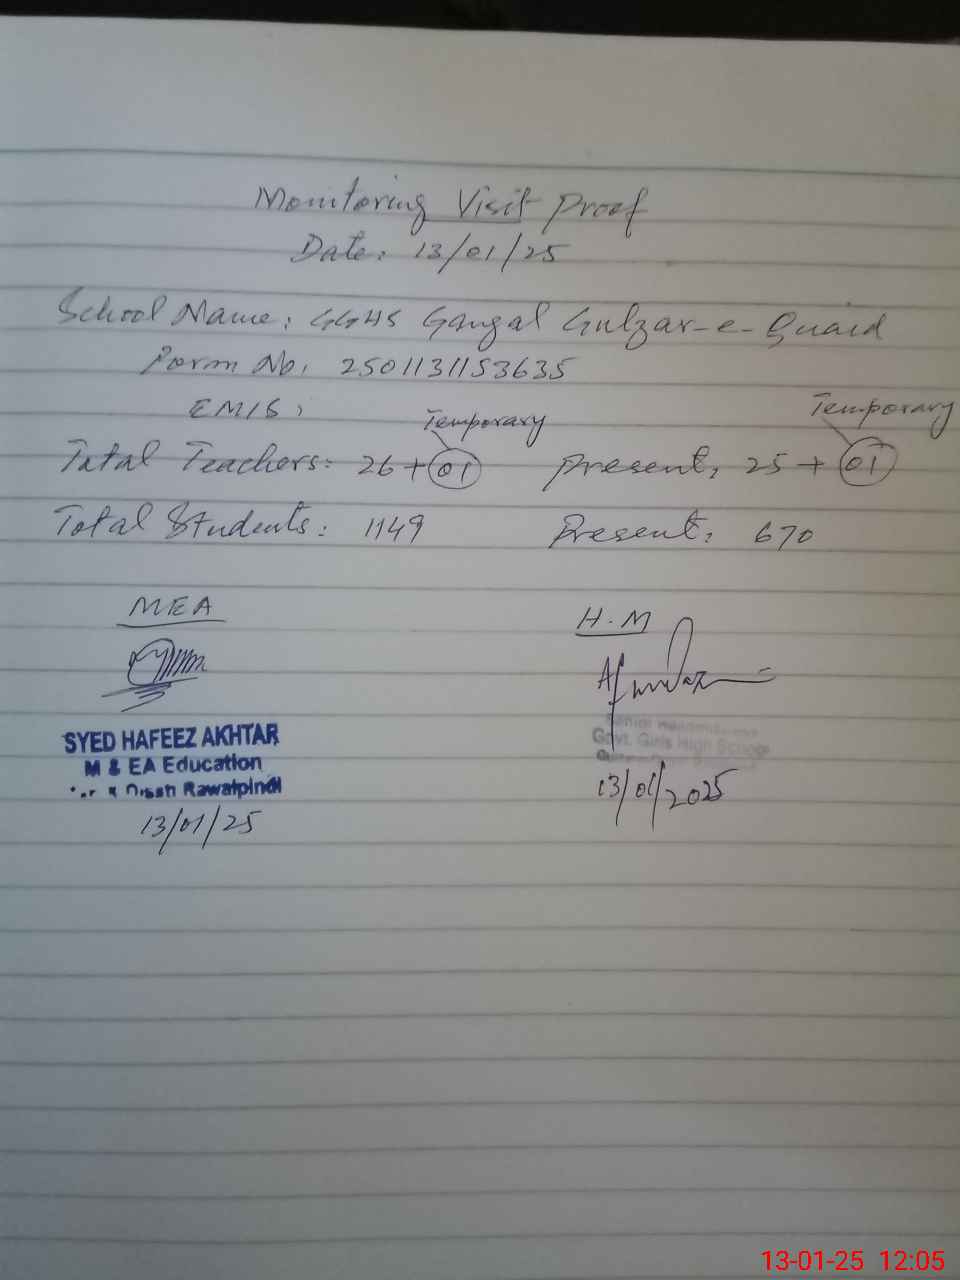 Monitoring Visit Proof
Date: 13/01/25
School Name: GGHS Gangal Gulzar-e-Quaid
Form No. 2501131153635
EMIS:
Temporary Temporary
Total Teachers: 26 + 01 Present: 25 + 01
Total Students: 1149 Present: 670
MEA H.M
SYED HAFEEZ AKHTAR
M & EA Education
Rawalpindi
Govt. Girls High School
13/01/25 13/01/2025
13-01-25 12:05